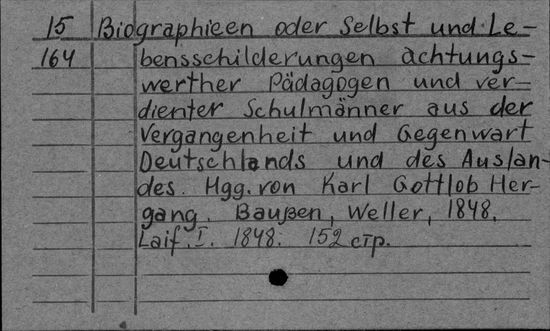 15 Biographieen oder Selbst und Le-
164 bensschilderungen achtungs-
werther Pädagogen und ver-
dienter Schulmänner aus der
Vergangenheit und Gegenwart
Deutschlands und des Auslan-
des. Hgg. von Karl Gottlob Her-
gang. Baußen, Weller, 1848.
Laif. I. 1848. 152 стр.